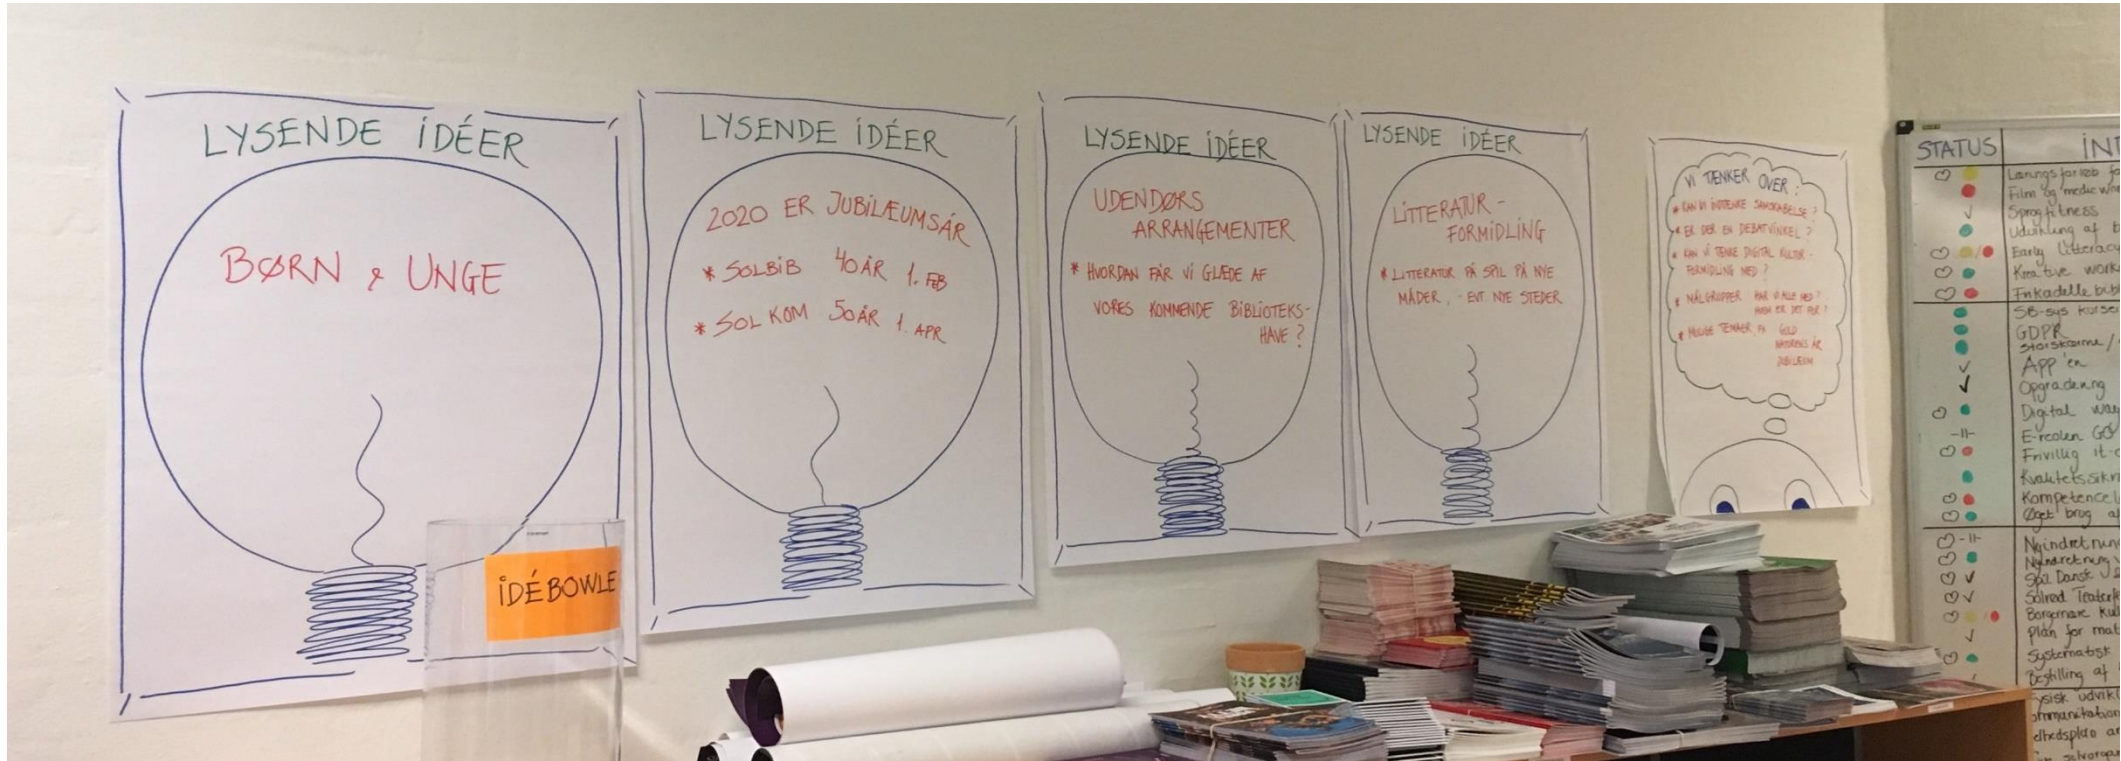 LYSENDE IDÉER
BØRN & UNGE
IDÉBOWLE
LYSENDE IDÉER
2020 ER JUBILÆUMSÅR
* SOLBIB 40 ÅR 1. FEB
* SOL KOM 50 ÅR 1. APR
LYSENDE IDÉER
UDENDØRS
ARRANGEMENTER
* HVORDAN FÅR VI GLÆDE AF
VORES KOMMENDE BIBLIOTEKS-
HAVE?
LYSENDE IDÉER
LITTERATUR-
FORMIDLING
* LITTERATUR PÅ SPIL PÅ NYE
MÅDER, - EVT. NYE STEDER
VI TÆNKER OVER:
* KAN VI INDTÆNKE SAMSKABELSE?
* ER DER EN DEBATVINKEL?
* KAN VI TÆNKE DIGITAL KULTUR-
FORMIDLING MED?
* MÅLGRUPPER HAR VI ALLE MED?
HVEM ER DET FOR?
* MULIGE TEMAER FX GULD
NATURENS ÅR
JUBILÆUM
STATUS
Læringsforløb
Film og medie
Sprogfitness
Udvikling af
Early Litteracy
Kreative
Frikadelle
SB-sys kurser
GDPR
Storskærme/
App'en
Opgradering
Digital
E-reolen GO
Frivillig it-
Kvalitetssikr
Kompetence
Øget brug af
Nyindretning
Nyindretning
Spil Dansk
Solrød Teater
Borgernære
Plan for mat
Systematisk
Bestilling af